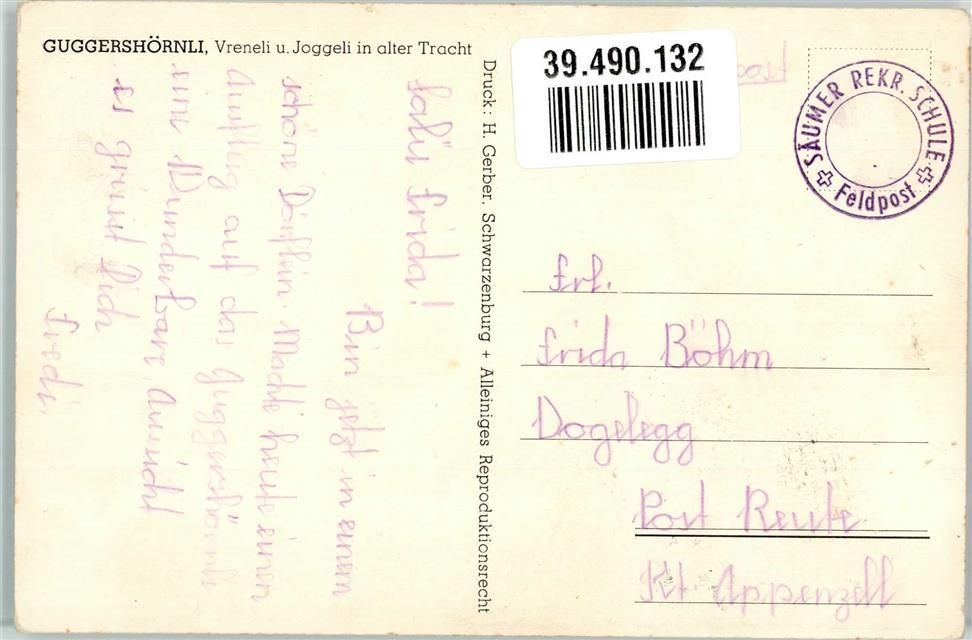 GUGGERSHÖRNLI, Vreneli u. Joggeli in alter Tracht
Salü Frida!
Bin jetzt in einem
schöne Dörflein. Mache heute einen
Ausflug auf das Guggershörnli
eine Wunderbare Aussicht
es grüsst Dich
Fredi.
Druck: H. Gerber, Schwarzenburg + Alleiniges Reproduktionsrecht
39.490.132
SÄUMER REKR. SCHULE
Feldpost
Frl.
Frida Böhm
Dogelegg
Post Reute
Kt. Appenzell